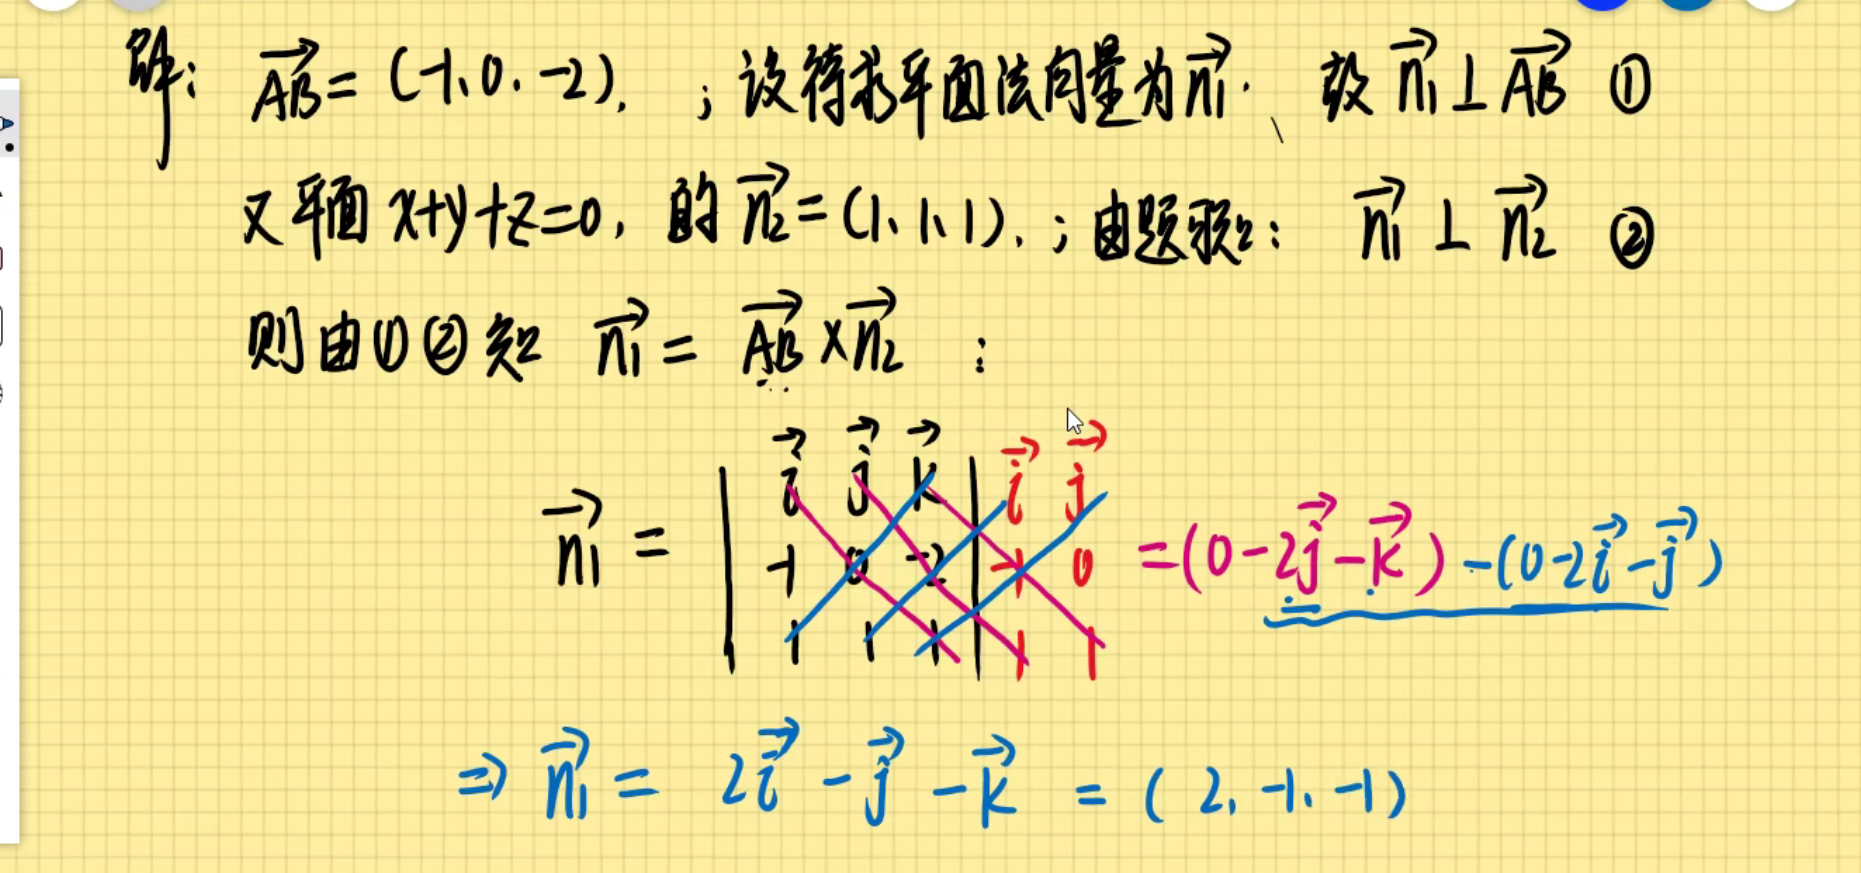 解: AB→ = (-1, 0, -2), ; 设待求平面法向量为 n1→, 故 n1→ ⊥ AB→ ①
又平面 x+y+z=0, 的 n2→ = (1, 1, 1), ; 由题意: n1→ ⊥ n2→ ②
则由①②知 n1→ = AB→ × n2→ :
i→ j→ k→ | i→ j→
n1→ = | -1 0 -2 | -1 0 = (0-2j→-k→) - (0-2i→-j→)
1 1 1 | 1 1
⇒ n1→ = 2i→ - j→ - k→ = (2, -1, -1)